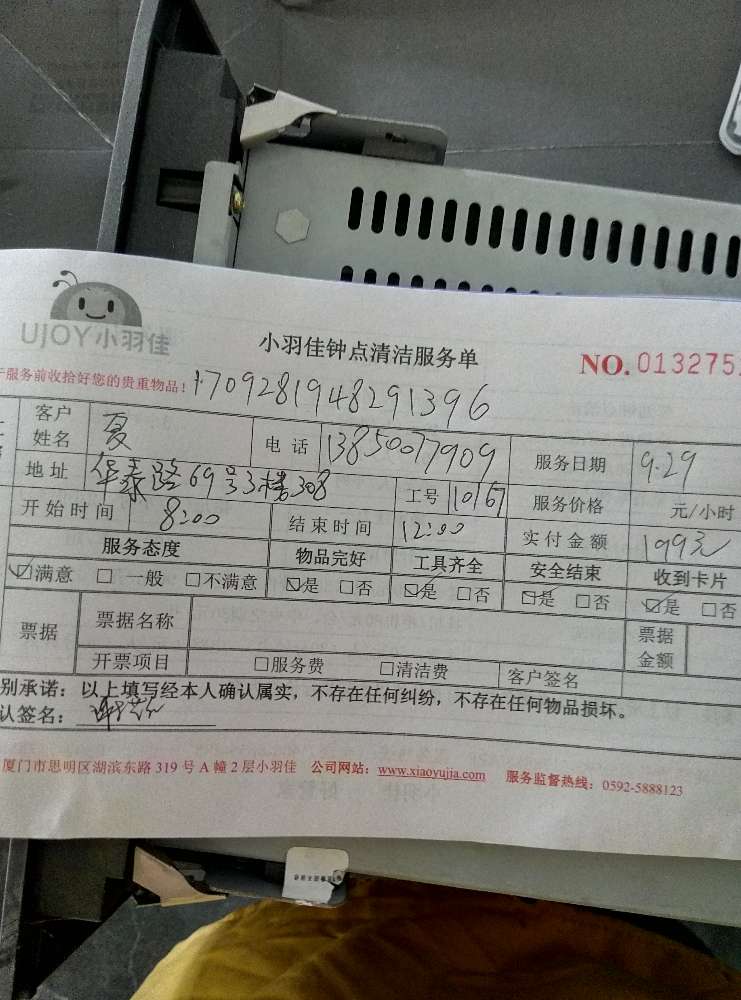 UJOY小羽佳
小羽佳钟点清洁服务单
NO. 013275
服务前收拾好您的贵重物品!
1709281948291396
客户姓名 夏 电话 13850077909 服务日期 9.29
地址 华泰路69号3楼308 工号 10167 服务价格 元/小时
开始时间 8:00 结束时间 12:00 实付金额 199元
服务态度 物品完好 工具齐全 安全结束 收到卡片
☑满意 □一般 □不满意 ☑是 □否 ☑是 □否 ☑是 □否 ☑是 □否
票据 票据名称 票据金额
开票项目 □服务费 □清洁费 客户签名
别承诺:以上填写经本人确认属实,不存在任何纠纷,不存在任何物品损坏。
认签名:
厦门市思明区湖滨东路 319 号 A 幢 2 层小羽佳 公司网站:www.xiaoyujia.com 服务监督热线:0592-5888123